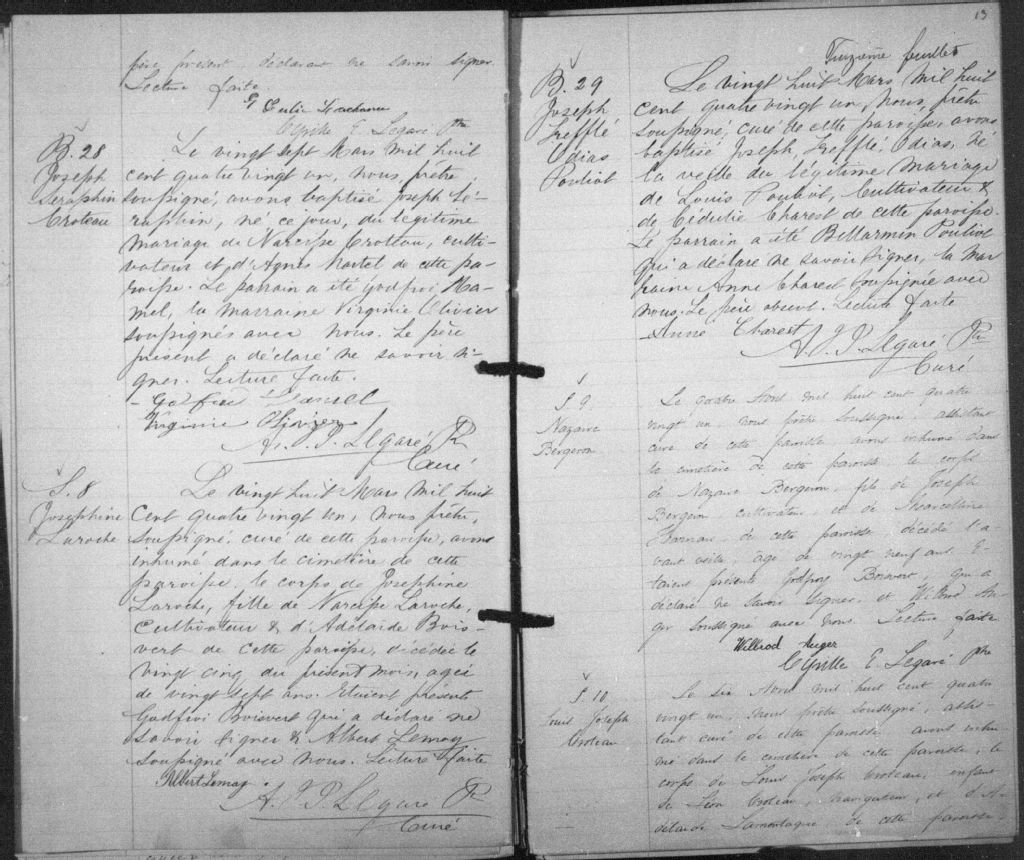 père présent déclarant ne savoir signer.
Lecture faite.
Cyrille E. Legaré Ptre
B. 28
Joseph
Seraphin
Croteau
Le vingt sept Mars mil huit
cent quatre vingt un, nous, prêtre
soussigné, avons baptisé Joseph Sé-
raphin, né ce jour, du légitime
mariage de Narcisse Crotteau, culti-
vateur et d'Agnes Martel de cette pa-
roisse. Le parrain a été Godfroi Ha-
mel, la marraine Virginie Olivier
soussignés avec nous. Le père
présent a déclaré ne savoir si-
gner. Lecture faite.
Godfroi Hamel
Virginie Olivier
A. P. Legaré Ptre
Curé
S. 8
Josephine
Laroche
Le vingt huit Mars mil huit
cent quatre vingt un, nous prêtre,
soussigné, curé de cette paroisse, avons
inhumé dans le cimetière de cette
paroisse, le corps de Josephine
Laroche, fille de Narcisse Laroche,
cultivateur & d'Adelaide Bois-
vert de cette paroisse, décédée le
vingt cinq du présent mois, agée
de vingt sept ans. Etaient présents
Godfroi Boisvert qui a déclaré ne
savoir signer & Albert Lemay
soussigné avec nous. Lecture faite
Albert Lemay
A. P. Legaré Ptre
Curé
13
Treizième feuillet
B. 29
Joseph
Trefflé
Odias
Pouliot
Le vingt huit Mars mil huit
cent quatre vingt un, Nous, prêtre
soussigné, curé de cette paroisse, avons
baptisé Joseph, Trefflé, Odias, né
la veille du légitime mariage
de Louis Pouliot, Cultivateur &
de Cédulie Charest de cette paroisse.
Le parrain a été Bellarmin Pouliot
qui a déclaré ne savoir signer, la mar
raine Anne Charest soussignée avec
nous. Le père absent. Lecture faite
Anne Charest
A. P. Legaré Ptre
Curé
S. 9
Nazaire
Bergeron
Le quatre Avril mil huit cent quatre
vingt un, nous prêtre soussigné, assistant
curé de cette paroisse avons inhumé dans
le cimetière de cette paroisse, le corps
de Nazaire Bergeron, fils de Joseph
Bergeron cultivateur et de Marcelline
de cette paroisse décédé l'a-
vant veille, agé de vingt neuf ans. E-
taient présents Godfroy Boisvert, qui a
déclaré ne savoir signer, et Wilbrod Au-
ger soussigné avec nous. Lecture faite
Wilbrod Auger
Cyrille E. Legaré Ptre
S 10
Louis Joseph
Croteau
Le six Avril mil huit cent quatre
vingt un, nous prêtre soussigné, assis-
tant curé de cette paroisse, avons inhu-
mé dans le cimetière de cette paroisse, le
corps de Louis Joseph Croteau, enfant
de Léon Croteau, navigateur, et d'A-
délaïde Lamontagne de cette paroisse,